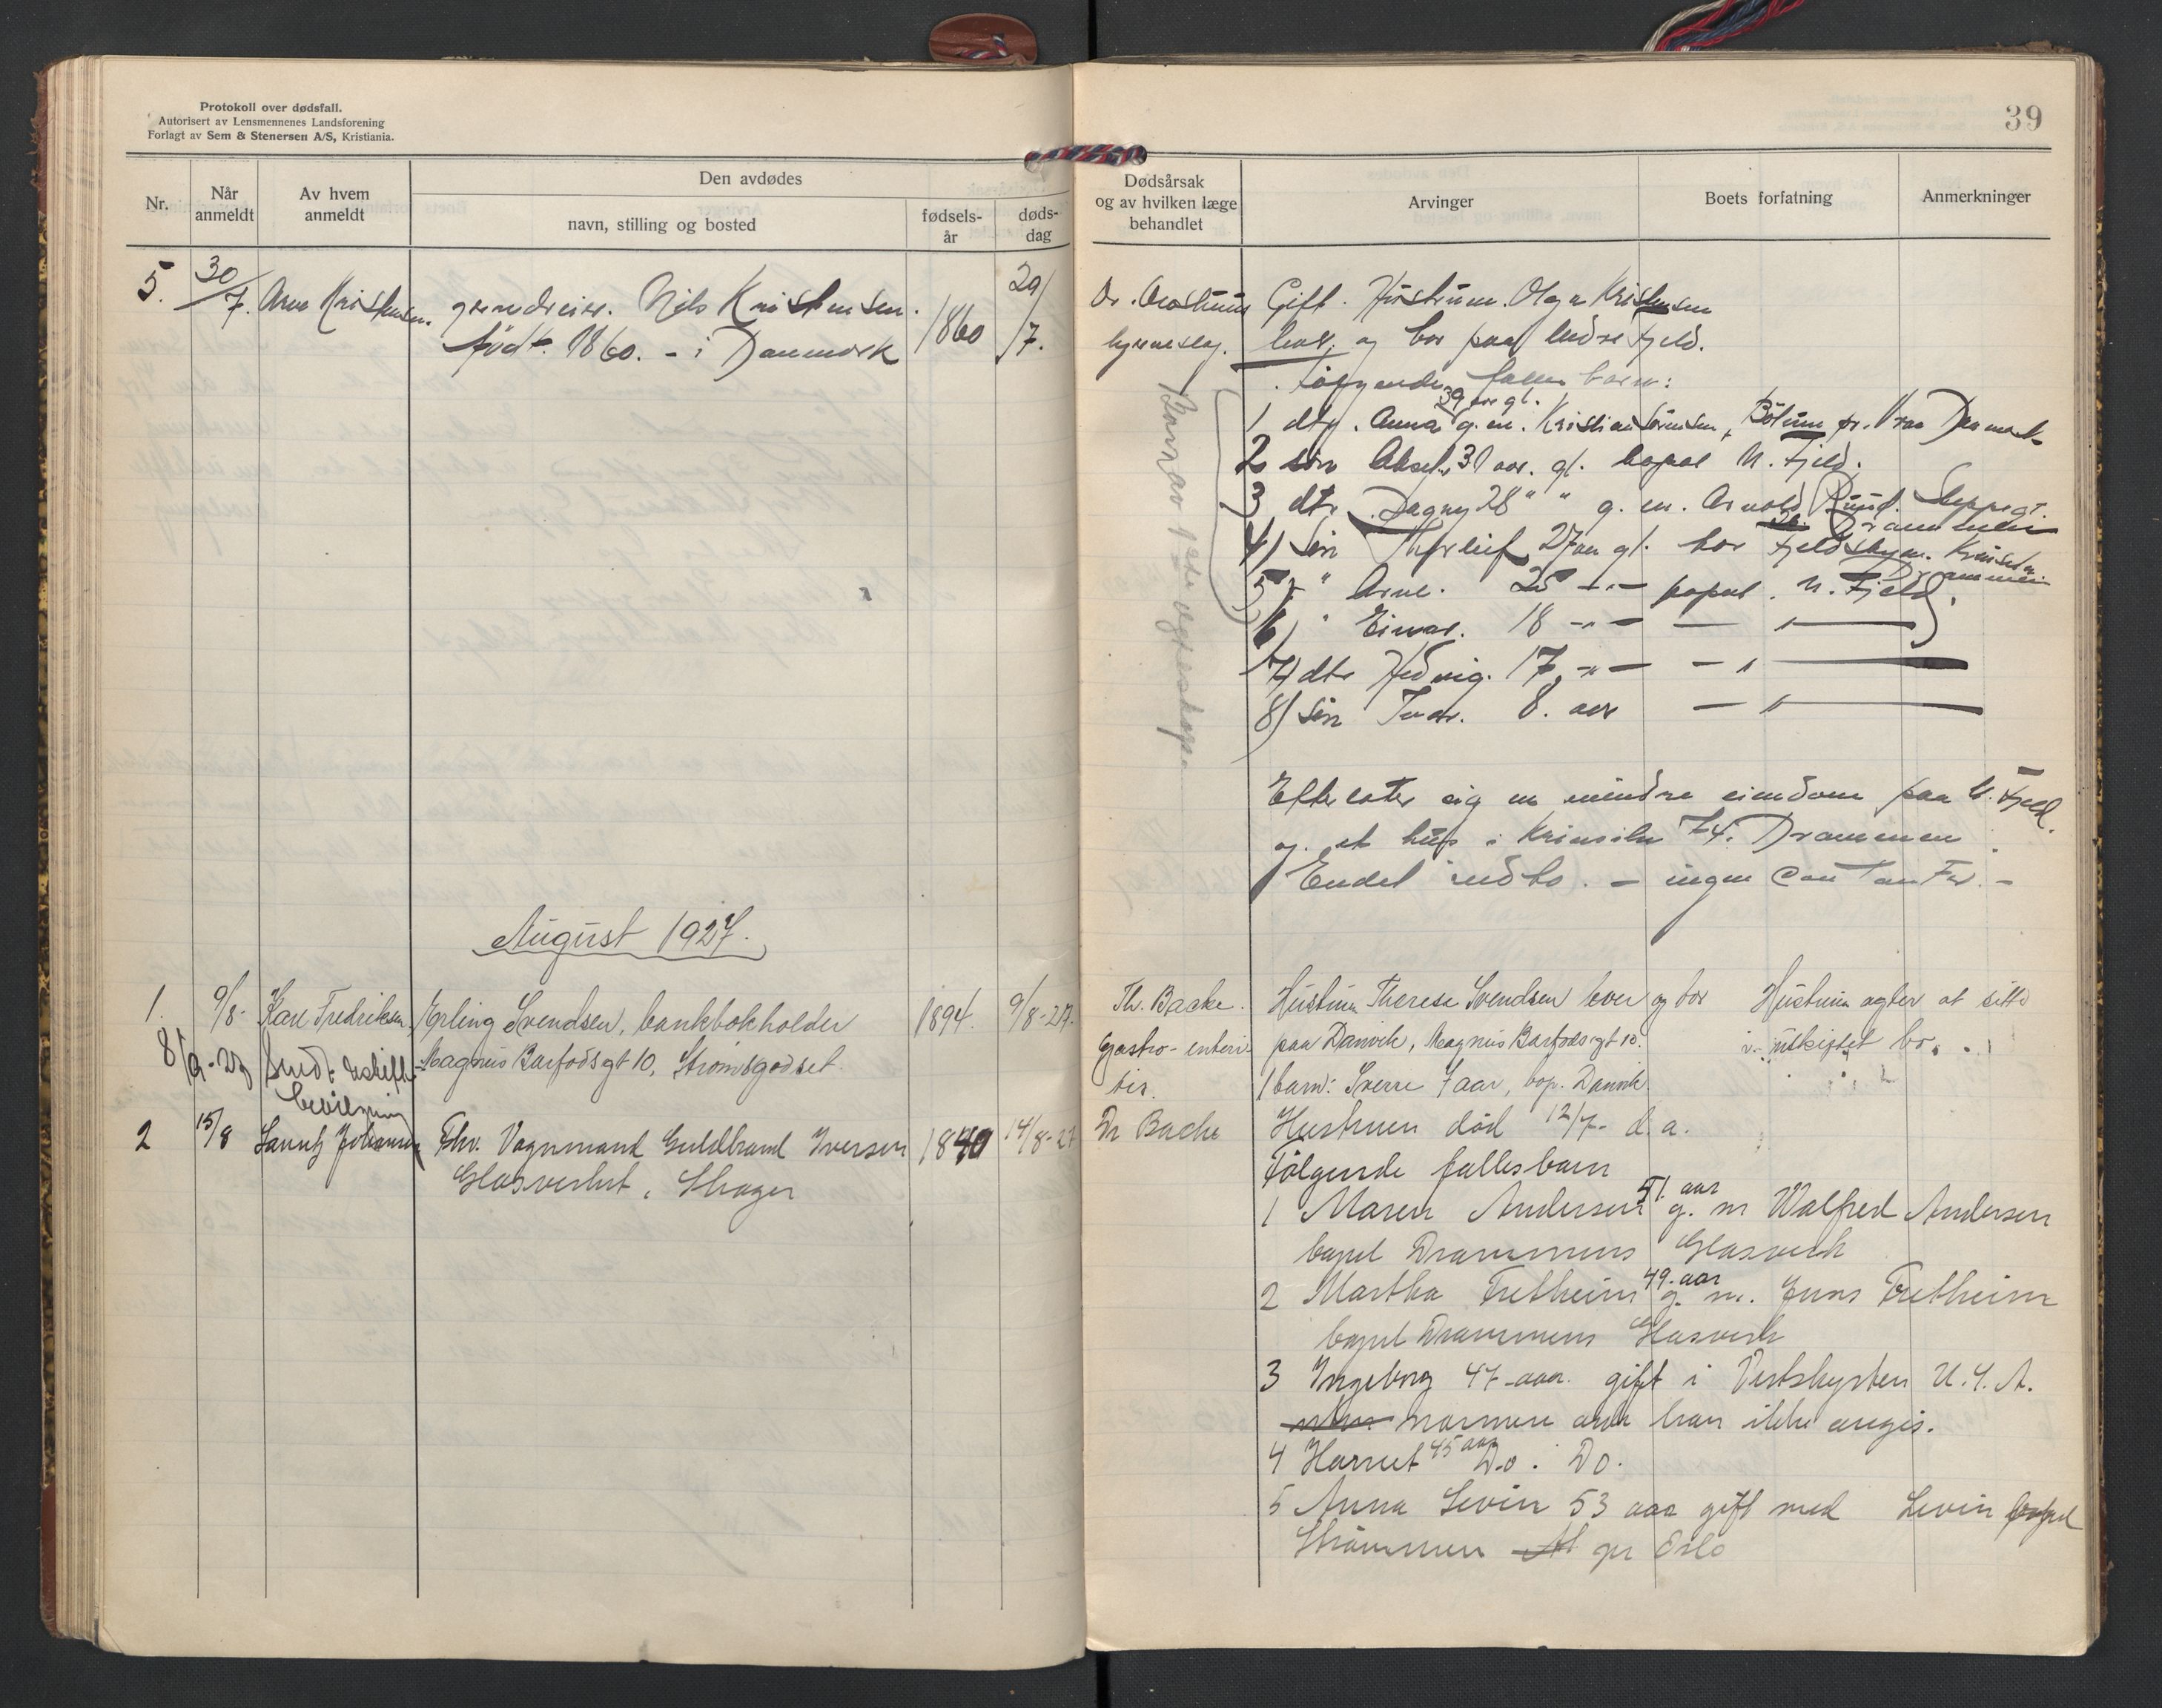 Protokoll over dødsfall.
Autorisert av Lensmennenes Landsforening
Forlagt av Sem & Stenersen A/S, Kristiania.
Nr.
Når anmeldt
Av hvem anmeldt
Den avdødes
navn, stilling og bosted
fødsels-år
døds-dag
5. 30/7. Arne Kristensen. grundreier. Nils Kristensen. 1860 29/7.
født. 1860. - i Danmark
August 1927.
1. 9/8- Karl Fredriksen, Erling Svendsen, bankbokholder 1894. 9/8-27.
8/9-27 Sendt skifte- Magnus Barfodsgt 10, Strømsgodset.
bevilgning
2 15/8 Johansen Fhv. Vognmand Guldbrand Iversen 1840 14/8-27
Glasverket, Skoger
39
Dødsårsak og av hvilken læge behandlet
Arvinger
Boets forfatning
Anmerkninger
Dr. Gift. Hustruen. Olga Kristensen
lever, og bor paa Indre Fjeld.
følgende felles barn:
Barn av 1ste egteskap
39 aar gl.
1 dtr. Anna g. m. Kristian Sørensen, pr. Vraa Danmark
2 søn Aksel, 31 aar. gl. bopæl N. Fjeld.
3 dtr Dagny 28 " " g. m. Arnold
Drammen
4) Søn Thorleif 27 aar gl. bor
Drammen
5) " Arne. 25 -"- bopæl. N. Fjeld.
6) " Einar. 18 -"- — " —
7) dtr Hedvig. 17 -"- — " —
8) Søn Ivar. 8. aar — " —
Efterlater sig en mindre eiendom paa N. Fjeld.
og et hus i 74. Drammen.
Endel indbo. - ingen Contanter. -
Th. Backe. Hustruen Therese Svendsen lever og bor Hustruen agter at sitte
Gastro-enteri- paa Danvik, Magnus Barfodsgt 10. i uskiftet bo.
tis. 1 barn: Sverre 7 aar, bop. Danvik
Dr Backe Hustruen død 12/7- d. a.
Følgende fællesbarn
51. aar
1 Maren Andersen g. m Walfred Andersen
bopæl Drammens Glasverk
49. aar
2 Martha Fretheim g. m. Jens Fretheim
bopæl Drammens Glasverk
3 Ingeborg 47 aar. gift i Vestkysten U.S.A.
kan ikke angis.
45 aar
4 Do. Do.
5 Anna Levin 53 aar gift med Levin bopæl
Strømmen pr Oslo